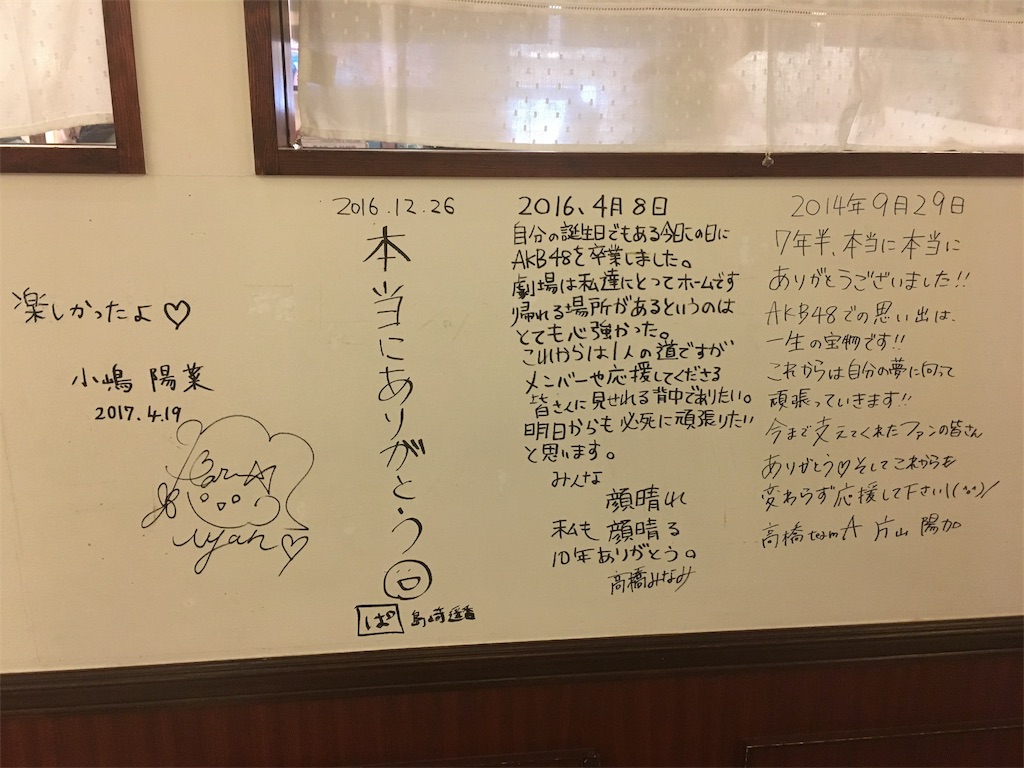 楽しかったよ♡
小嶋 陽菜
2017.4.19
2016.12.26
本当にありがとう
ぱ 島崎遥香
2016、4月8日
自分の誕生日でもある今日この日に
AKB48を卒業しました。
劇場は私達にとってホームです
帰れる場所があるというのは
とても心強かった。
これからは1人の道ですが
メンバーや応援してくださる
皆さんに見せれる背中でありたい。
明日からも必死に頑張りたい
と思います。
みんな
顔晴れ
私も 顔晴る
10年ありがとう。
高橋みなみ
2014年9月29日
7年半、本当に本当に
ありがとうございました!!
AKB48での思い出は、
一生の宝物です!!
これからは自分の夢に向って
頑張っていきます!!
今まで支えてくれたファンの皆さん
ありがとう♡そしてこれからも
変わらず応援して下さい\(^o^)/
高橋teamA 片山 陽加